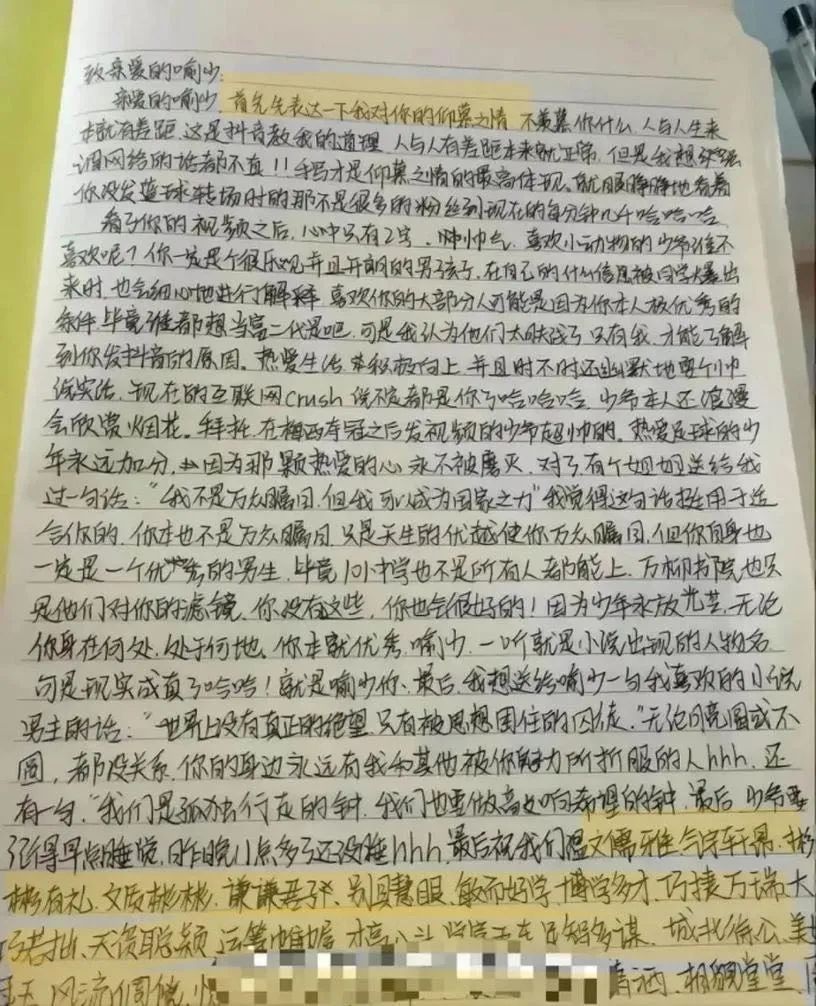 致亲爱的喻少:
亲爱的喻少,首先先表达一下我对你的仰慕之情 不羡慕你什么,人与人生来
本就有差距,这是抖音教我的道理 人与人有差距本来就正常,但是我想
谓网络的话都不直!!手写才是仰慕之情的最高体现。就服静静地看着
你没发篮球转场时的那不是很多的粉丝到现在的每分钟几千哈哈哈
看了你的视频之后,心中只有2字,帅帅气,喜欢小动物的少爷谁不
喜欢呢?你一定是个很乐观并且开朗的男孩子,在自己的什么信息被同学爆出
来时,也会细心地进行解释,喜欢你的大部分人可能是因为你本人极优秀的
条件,毕竟谁都想当富二代是吧,可是我认为他们太肤浅了,只有我,才能了解
到你发抖音的原因。热爱生活,积极向上,并且时不时还幽默地耍个帅
说实话,现在的互联网crush说不定都是你了哈哈哈,少爷本人还浪漫
会欣赏烟花。拜托,在梅西夺冠之后发视频的少爷超帅的。热爱足球的少
年永远加分,因为那颗热爱的心永不被磨灭,对了有个姐姐送给我
过一句话:“我不是万众瞩目,但我可以成为国家之力”我觉得这句话挺用于适
合你的,你本也不是万众瞩目,只是天生的优越使你万众瞩目,但你自身也
一定是一个优秀的男生,毕竟101中学也不是所有人都能上,万柳书院也只
是他们对你的滤镜,你没有这些,你也会很好的!因为少年永放光芒,无论
你身在何处,处于何地,你本就优秀,喻少,一听就是小说出现的人物名
句是现实成真了哈哈!就是喻少你、最后,我想送给喻少一句我喜欢的小说
男主的话:“世界上没有真正的绝望,只有被思想困住的囚徒,”无论月亮圆或不
圆,都没关系,你的身边永远有我和其他被你魅力所折服的人hhh,还
有一句,“我们是孤独行走的钟,我们也要做高处响希望的钟,最后,少爷要
记得早点睡觉,昨晚11点多了还没睡hhh,最后祝我们温文儒雅,气宇轩昂,彬
彬有礼,文质彬彬,谦谦君子,别具慧眼,敏而好学,博学多才,巧捷万端,大
巧若拙,天资聪颖,运筹帷幄,才高八斗 足智多谋,城北徐公,美
风流倜傥, 相貌堂堂